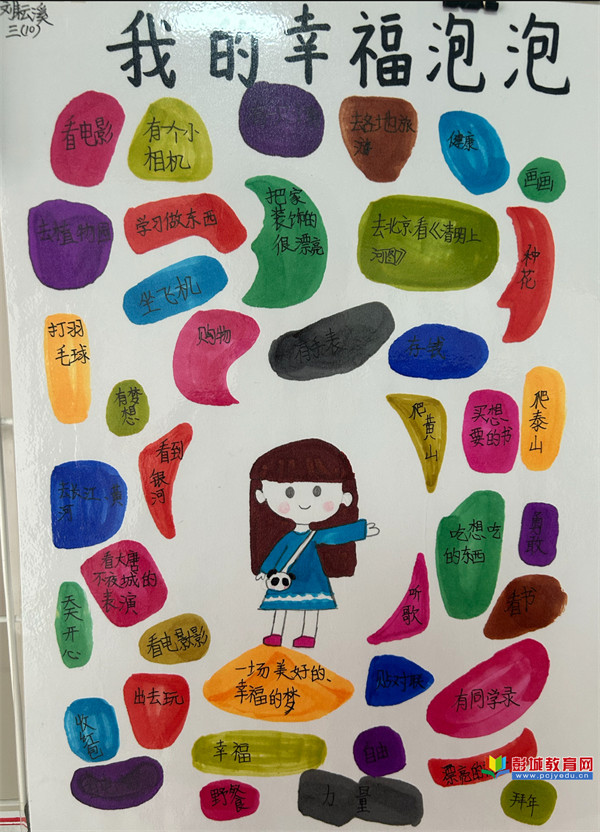 刘耘溪
三(10)
我的幸福泡泡
看电影
有个小
相机
去各地旅
游
健康
画画
去植物园
学习做东西
把家
装饰的
很漂亮
去北京看《清明上
河图》
种花
坐飞机
打羽
毛球
购物
有手表
存钱
有梦
想
爬黄山
买想
要的书
爬泰山
看到银河
去长江、黄
河
吃想吃
的东西
勇敢
看大唐
不夜城的
表演
天天开心
听歌
看书
看电影影
一场美好的、
幸福的梦
贴对联
有同学录
出去玩
收红包
幸福
自由
漂亮的
彭城教育网
www.pcjyedu.cn
野餐
力量
拜年